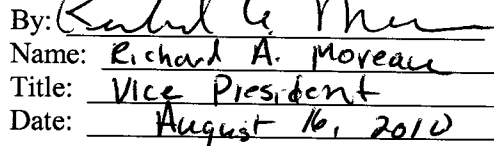 By:
Name: Richard A. Moreau
Title: Vice President
Date: August 16, 2010